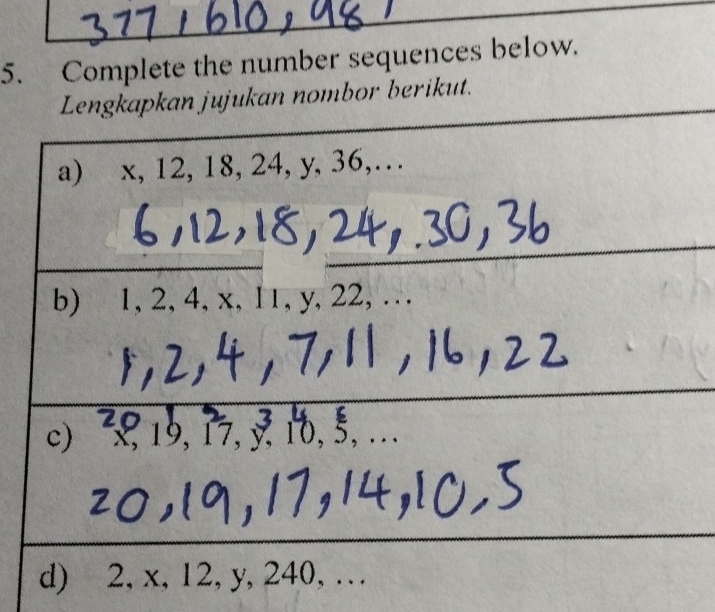 377, 610, 98
5. Complete the number sequences below.
Lengkapkan jujukan nombor berikut.
a) x, 12, 18, 24, y, 36,...
6, 12, 18, 24, 30, 36
b) 1, 2, 4, x, 11, y, 22, ...
1, 2, 4, 7, 11, 16, 22
20 1 2 3 4 5
c) x, 19, 17, y, 10, 5, ...
20, 19, 17, 14, 10, 5
d) 2, x, 12, y, 240, ...